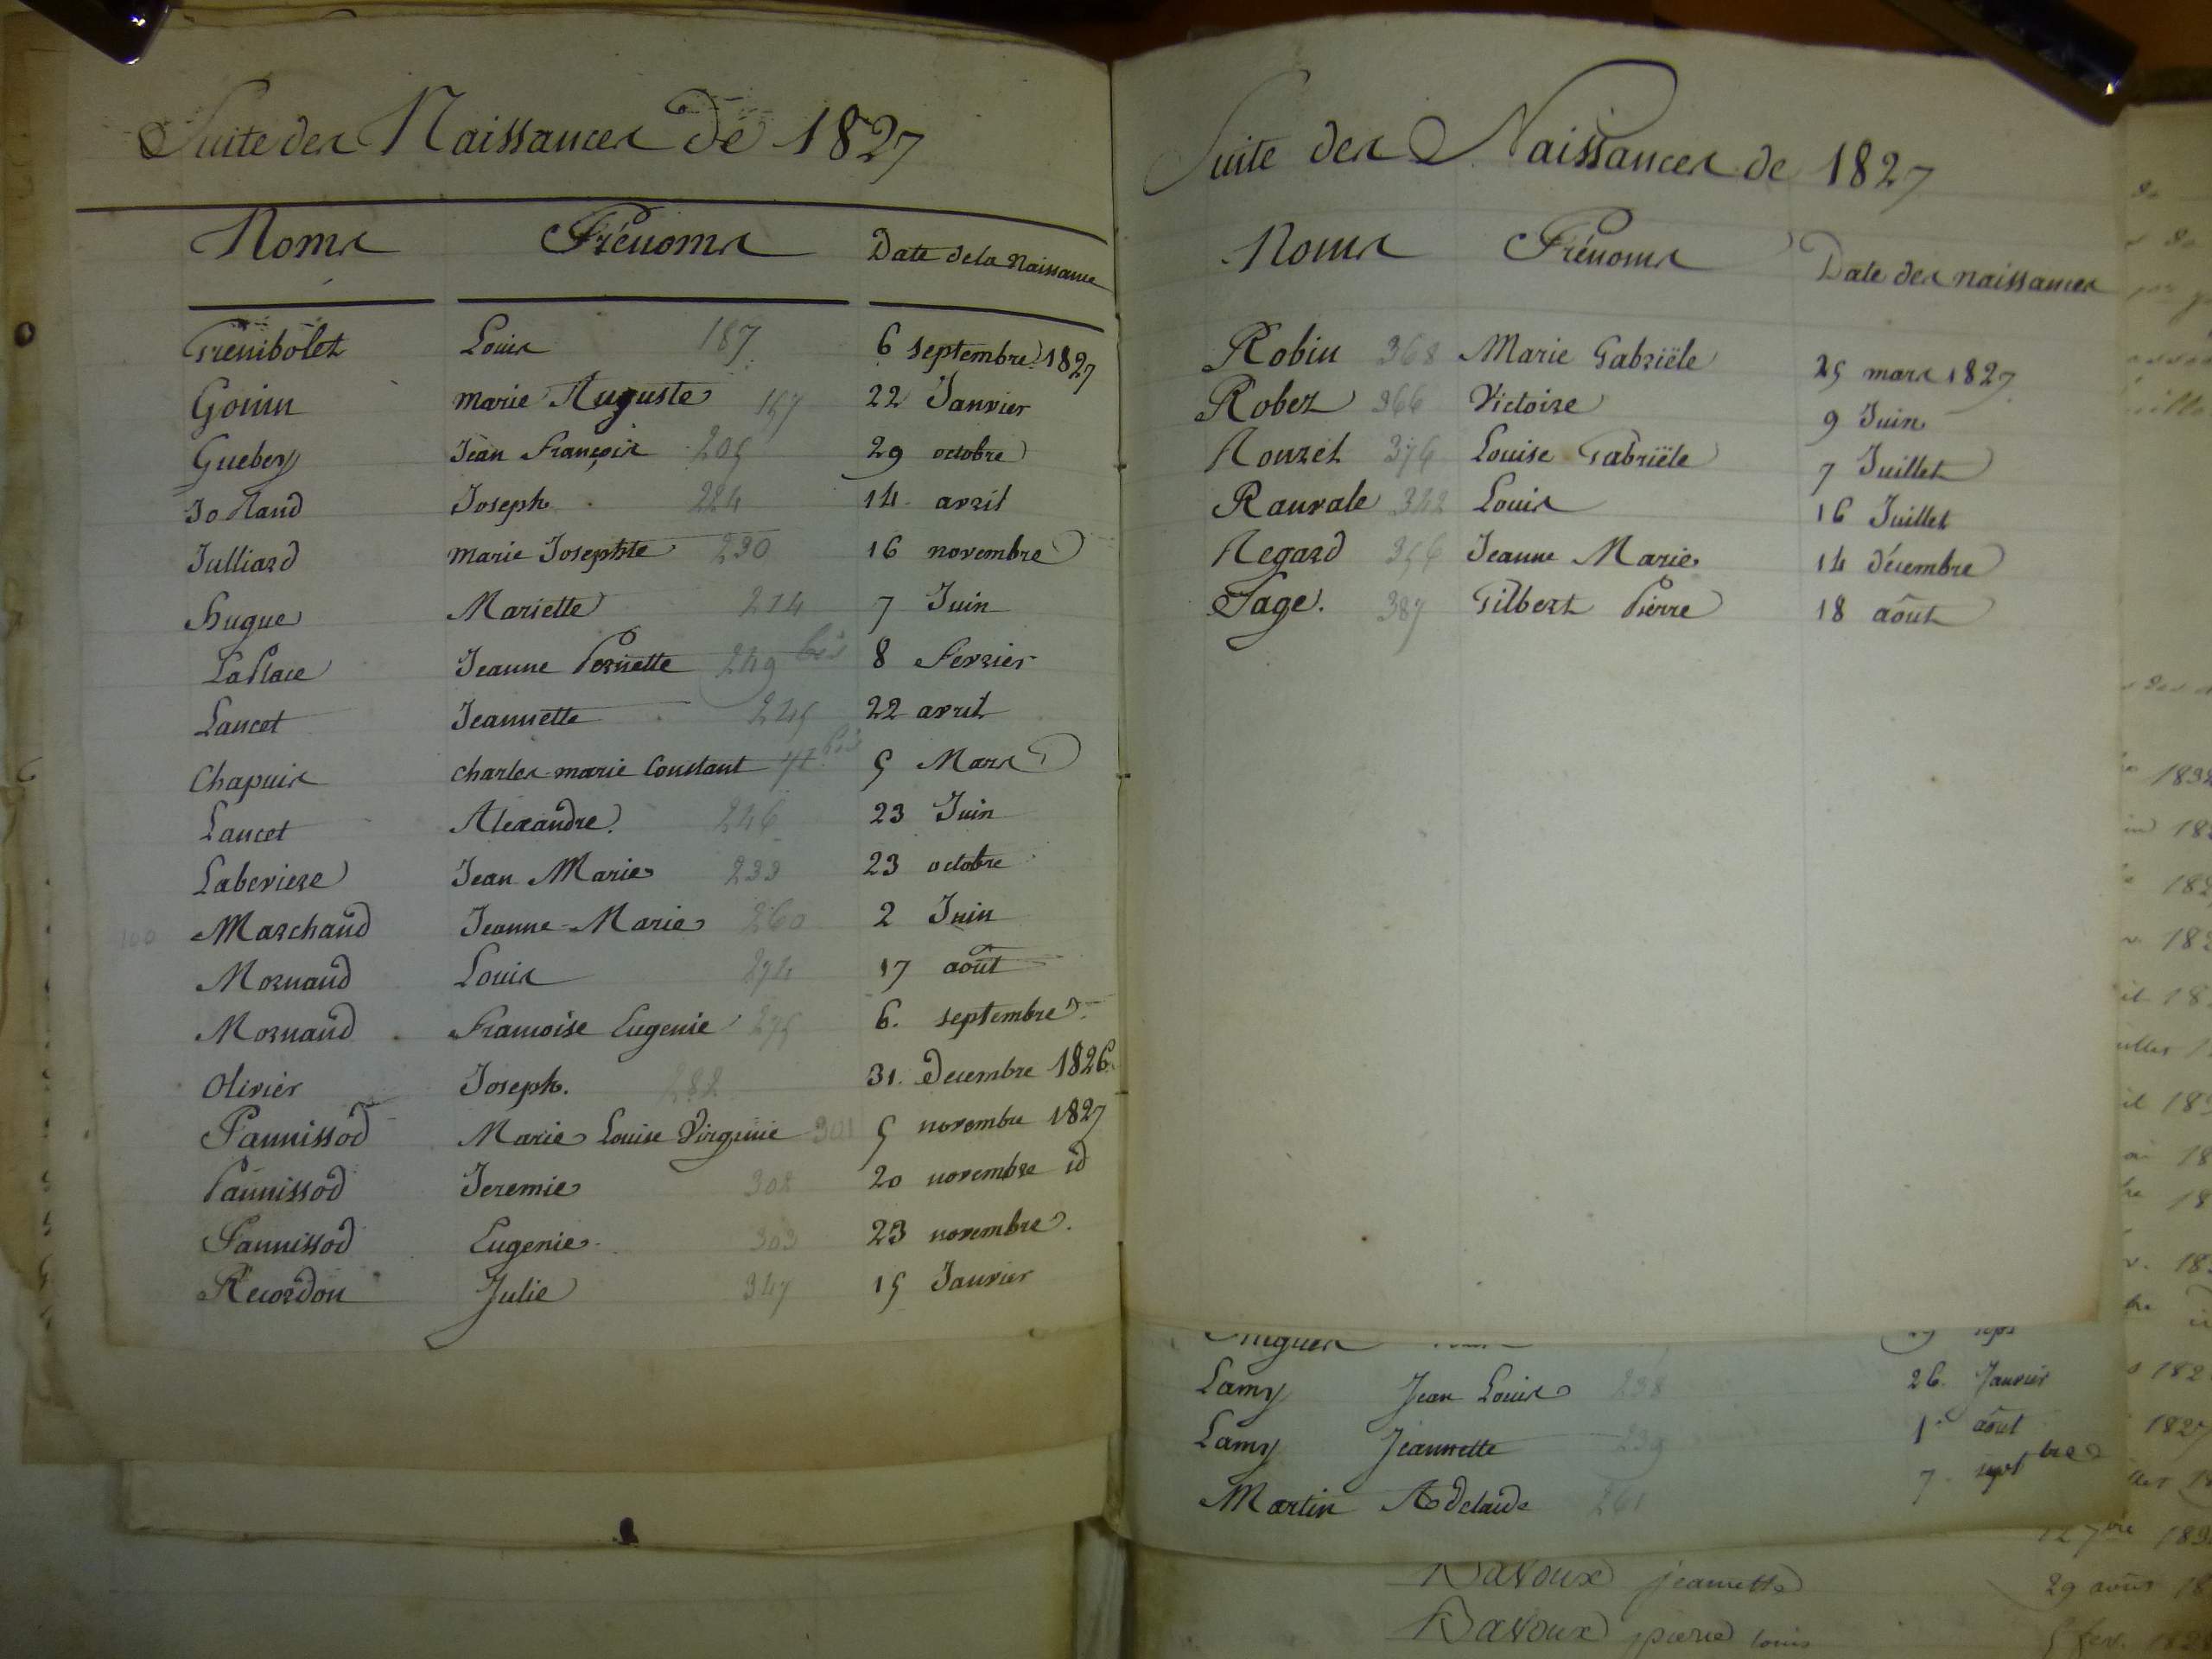 Suite des Naissances de 1827
Noms Prénoms Date de la Naissance
Grenibolet Louis 187 6 septembre 1827
Gouin marie Auguste 22 Janvier
Guebey Jean François 205 29 octobre
Jolland Joseph 224 14 avril
Julliard marie Josephte 230 16 novembre
hugue Mariette 214 7 Juin
LaPlace Jeanne Pernette 249 bis 8 fevrier
Lancet Jeannette 245 22 avril
Chapuis charles marie Constant bis 5 Mars
Lancet Alexandre 246 23 Juin
Laberiere Jean Marie 233 23 octobre
100 Marchand Jeanne-Marie 260 2 Juin
Mornand Louis 274 17 août
Mornand Francoise Eugenie 275 6. septembre
Olivier Joseph. 282 31. Decembre 1826.
Pannissod Marie Louise Virginie 301 5 novembre 1827
Pannissod Jeremie 302 20 novembre id
Pannissod Eugenie 303 23 novembre.
Recordon Julie 347 15 Janvier
Suite des Naissances de 1827
Noms Prénoms Date des naissances
Robin 368 Marie Gabriële 25 mars 1827
Robez 366 Victoire 9 Juin
Rouzet 376 Louise Gabriële 7 Juillet
Ravrale 342 Louis 16 Juillet
Regard 356 Jeanne Marie 14 décembre
Sage. 387 Gilbert Pierre 18 août
Lamy Jean Louis 238 26. Janvier
Lamy Jeannette 239 1er août
Martin Adelaide 261 7. septbre
Bavoux jeannette 29 août
Bavoux pierre louis 5 fev. 1828